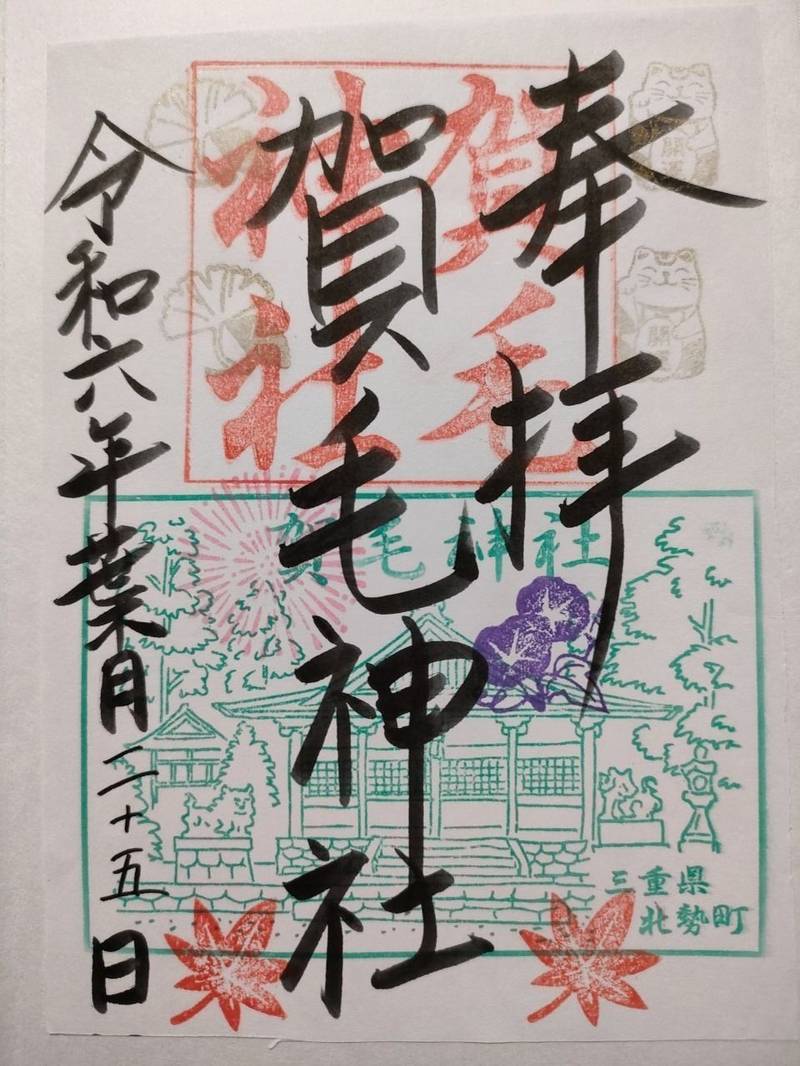 奉拝
賀毛神社
令和六年葉月二十五日
賀毛
神社
賀毛神社
三重県
北勢町
開運
開運